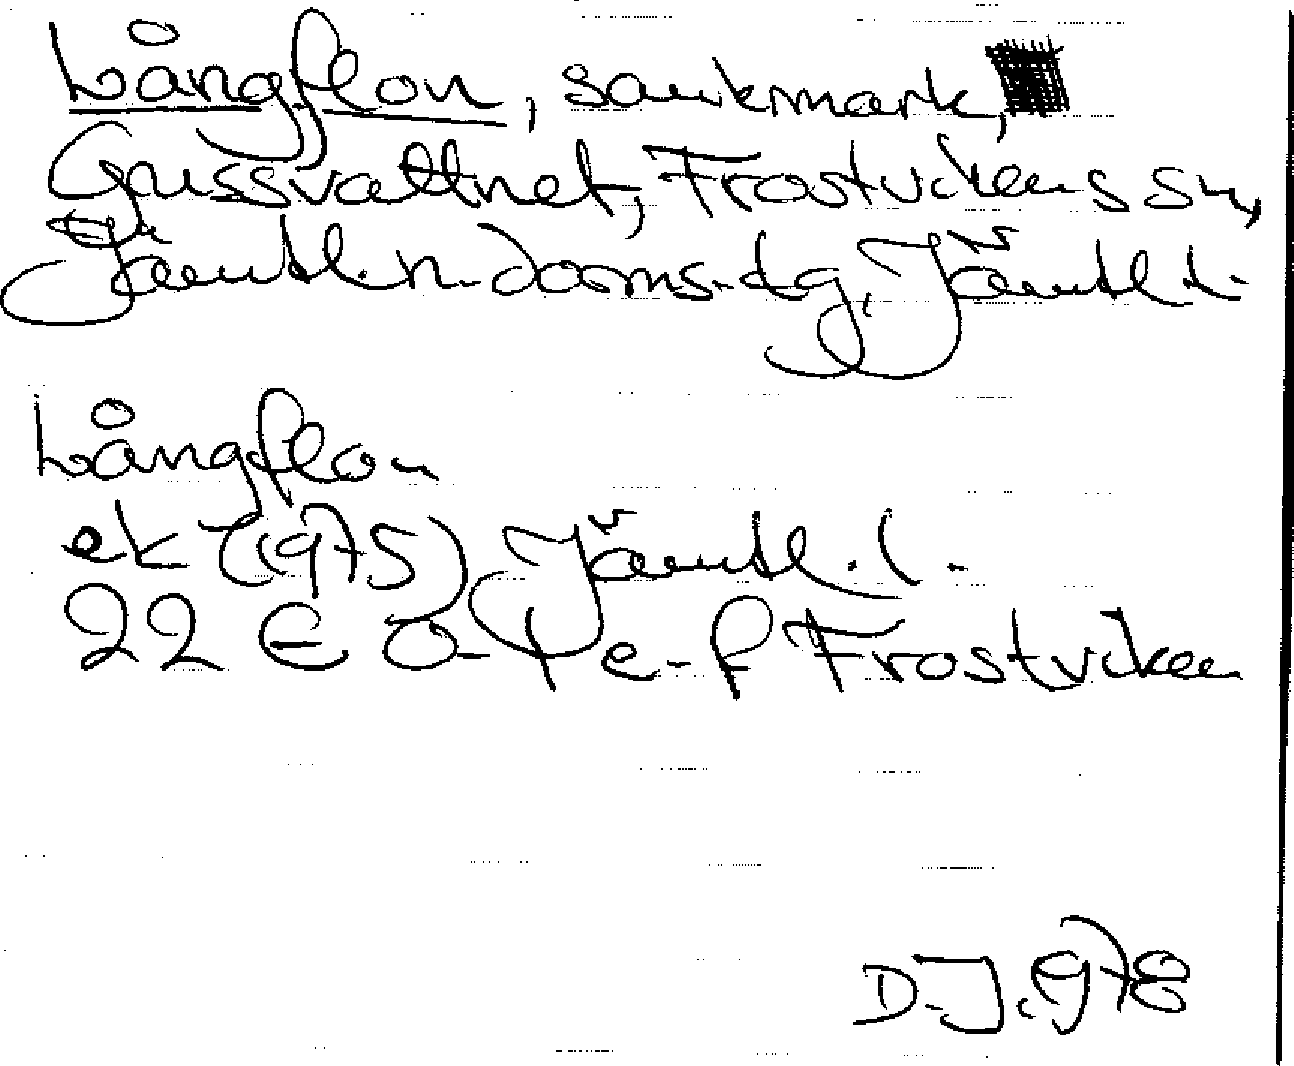 Långflon, sankmark,
Gussvattnet, Frostvikens sn,
Jämtl. n. doms. dg, Jämtl. l.
Långflon
ek (1975) Jämtl. l.
22 E 0-1 e-f Frostviken
D.J. 1978